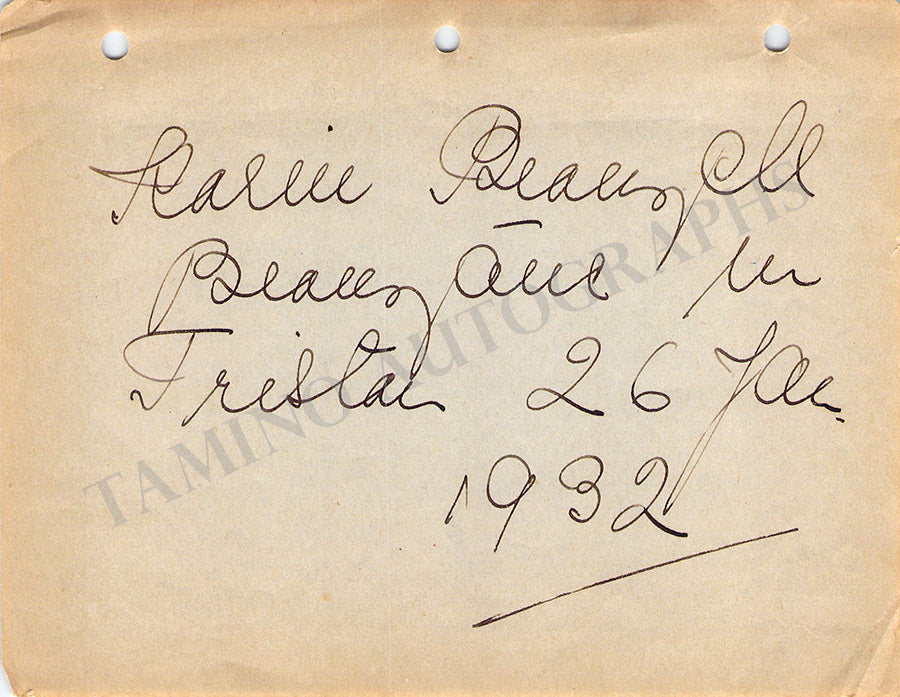 Karin Branzell
Brangäne in
Tristan 26 Jan.
1932
TAMINO AUTOGRAPHS